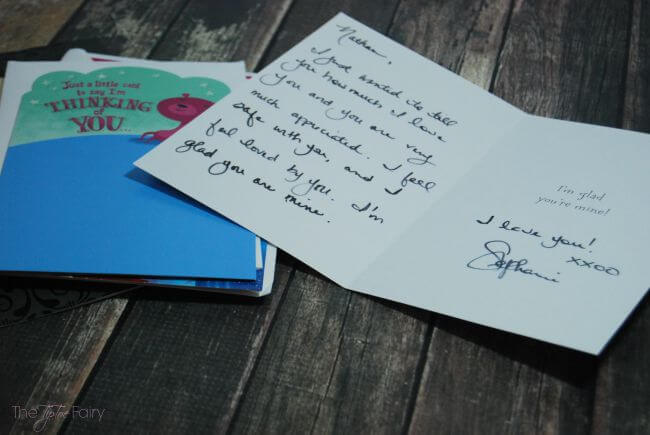 Just a little card
to say I'm
THINKING
of
YOU...
Nathan,
I just wanted to tell
you how much I love
you and you are very
much appreciated. I feel
safe with you, and I
feel loved by you. I'm
glad you are mine.
I'm glad
you're mine!
I love you!
xxoo
Stephanie
The TipToe Fairy